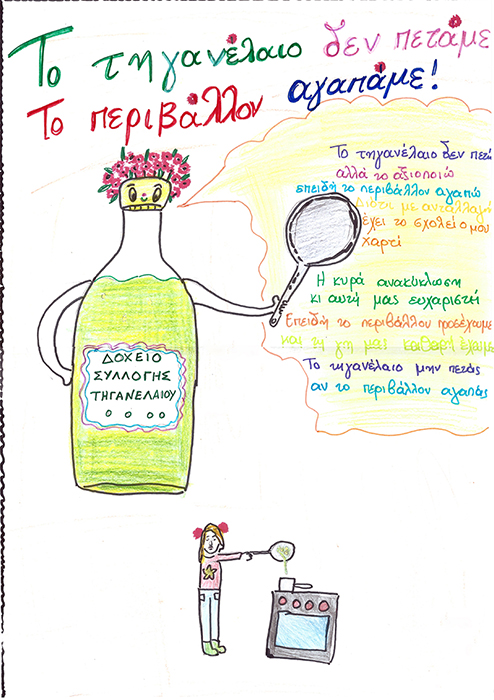 Το τηγανέλαιο δεν πετάμε
Το περιβάλλον αγαπάμε!
Το τηγανέλαιο δεν πετώ
αλλά το αξιοποιώ
επειδή το περιβάλλον αγαπώ
Διότι με ανταλλαγή
έχει το σχολείο μου
χαρτί
Η κυρά ανακύκλωση
κι αυτή μας ευχαριστεί
Επειδή το περιβάλλον προσέχουμε
και τη γη μας καθαρή έχουμε
Το τηγανέλαιο μην πετάς
αν το περιβάλλον αγαπάς
ΔΟΧΕΙΟ
ΣΥΛΛΟΓΗΣ
ΤΗΓΑΝΕΛΑΙΟΥ